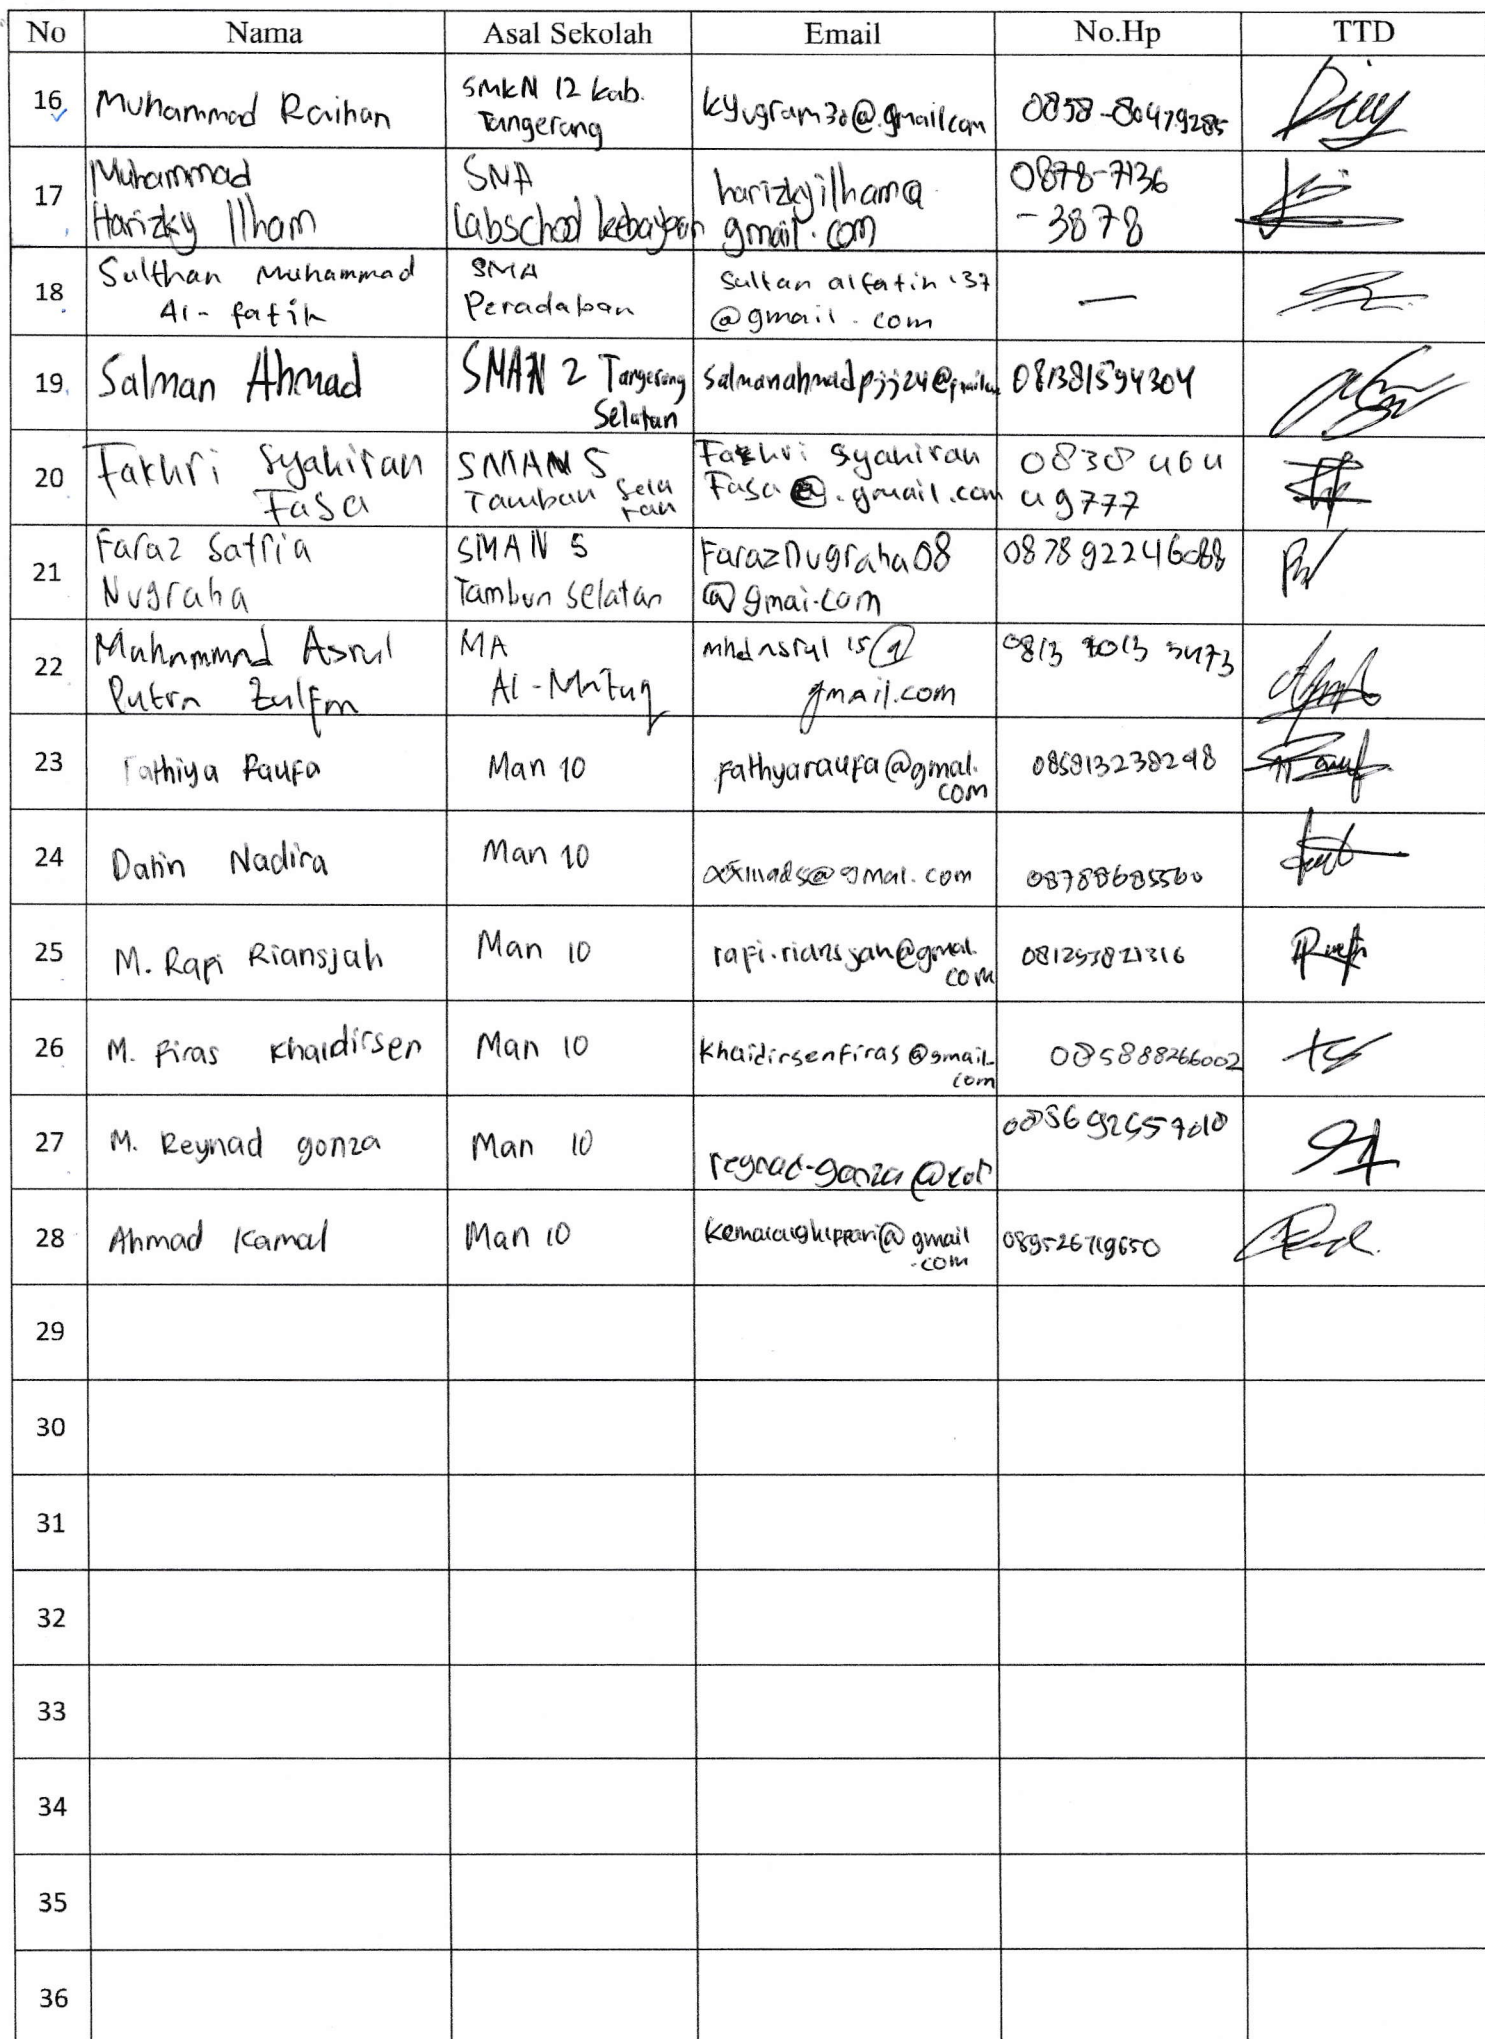 No Nama Asal Sekolah Email No.Hp TTD
16 Muhammad Raihan SMKN 12 kab. Tangerang kyugram30@.gmail.com 0858-80479285
17 Muhammad Harizky Ilham SMA Labschool kebayoran harizkyilham@gmail.com 0878-7136-3878
18 Sulthan Muhammad Al-fatih SMA Peradaban Sultan alfatih 137 @gmail.com —
19 Salman Ahmad SMAN 2 Tangerang Selatan Salmanahmadpjj24@gmail.com 081381594304
20 Fakhri Syahiran Fasa SMAN 5 Tambun Selatan Fakhri Syahiran Fasa @.gmail.com 0838 404 49777
21 Faraz Satria Nugraha SMAN 5 Tambun Selatan Faraznugraha08 @gmai.com 087892246088
22 Muhammad Asrul Putra Zulfm MA Al-Matuq mhdasrul 15@ gmail.com 0813 7013 3473
23 Fathiya Raufa Man 10 fathyaraufa@gmal.com 085813238248
24 Datin Nadira Man 10 @gmal.com 08788685560
25 M. Rafi Riansjah Man 10 rafi.riansjah@gmal.com 081253821316
26 M. Firas Khaidirsen Man 10 Khaidirsenfiras@gmail.com 085888266002
27 M. Reynad gonza Man 10 reynad-gonza@
28 Ahmad Kamal Man 10 @gmail.com 089526719650
29
30
31
32
33
34
35
36